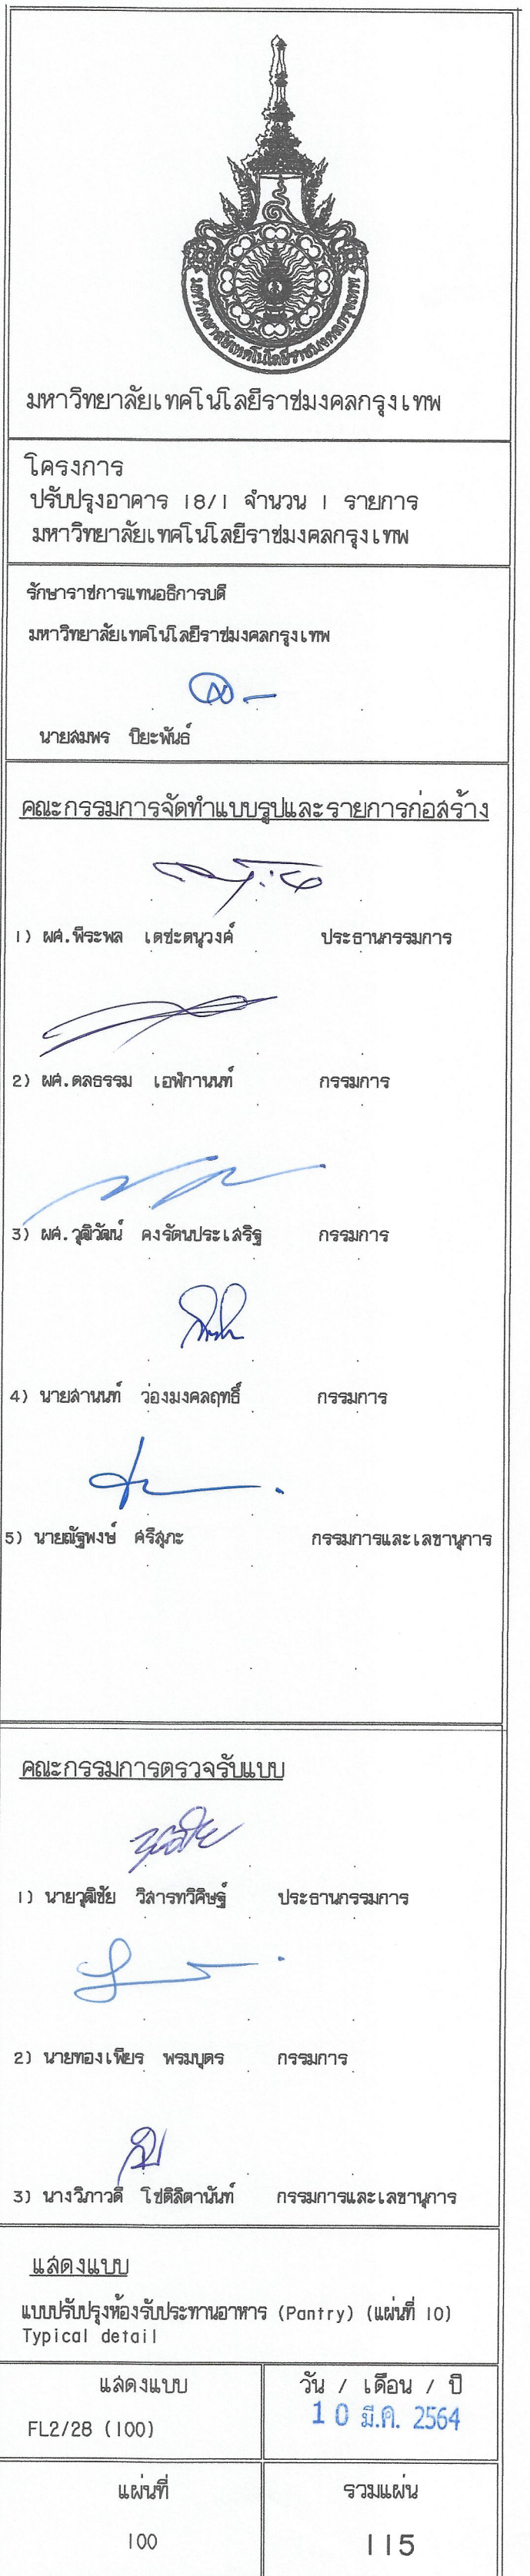 มหาวิทยาลัยเทคโนโลยีราชมงคลกรุงเทพ
มหาวิทยาลัยเทคโนโลยีราชมงคลกรุงเทพ
โครงการ
ปรับปรุงอาคาร 18/1 จำนวน 1 รายการ
มหาวิทยาลัยเทคโนโลยีราชมงคลกรุงเทพ
รักษาราชการแทนอธิการบดี
มหาวิทยาลัยเทคโนโลยีราชมงคลกรุงเทพ
นายสมพร ปิยะพันธ์
คณะกรรมการจัดทำแบบรูปและรายการก่อสร้าง
1) ผศ.พีระพล เดชะดนุวงค์ ประธานกรรมการ
2) ผศ.ดลธรรม เอฬกานนท์ กรรมการ
3) ผศ.วุฒิวัฒน์ คงรัตนประเสริฐ กรรมการ
4) นายสานนท์ ว่องมงคลฤทธิ์ กรรมการ
5) นายณัฐพงษ์ ศรีสุภะ กรรมการและเลขานุการ
คณะกรรมการตรวจรับแบบ
1) นายวุฒิชัย วิสารทวิศิษฐ์ ประธานกรรมการ
2) นายทองเพียร พรมบุตร กรรมการ
3) นางวิภาวดี โชติลิตานันท์ กรรมการและเลขานุการ
แสดงแบบ
แบบปรับปรุงห้องรับประทานอาหาร (Pantry) (แผ่นที่ 10)
Typical detail
แสดงแบบ
FL2/28 (100)
วัน / เดือน / ปี
10 มี.ค. 2564
แผ่นที่
100
รวมแผ่น
115